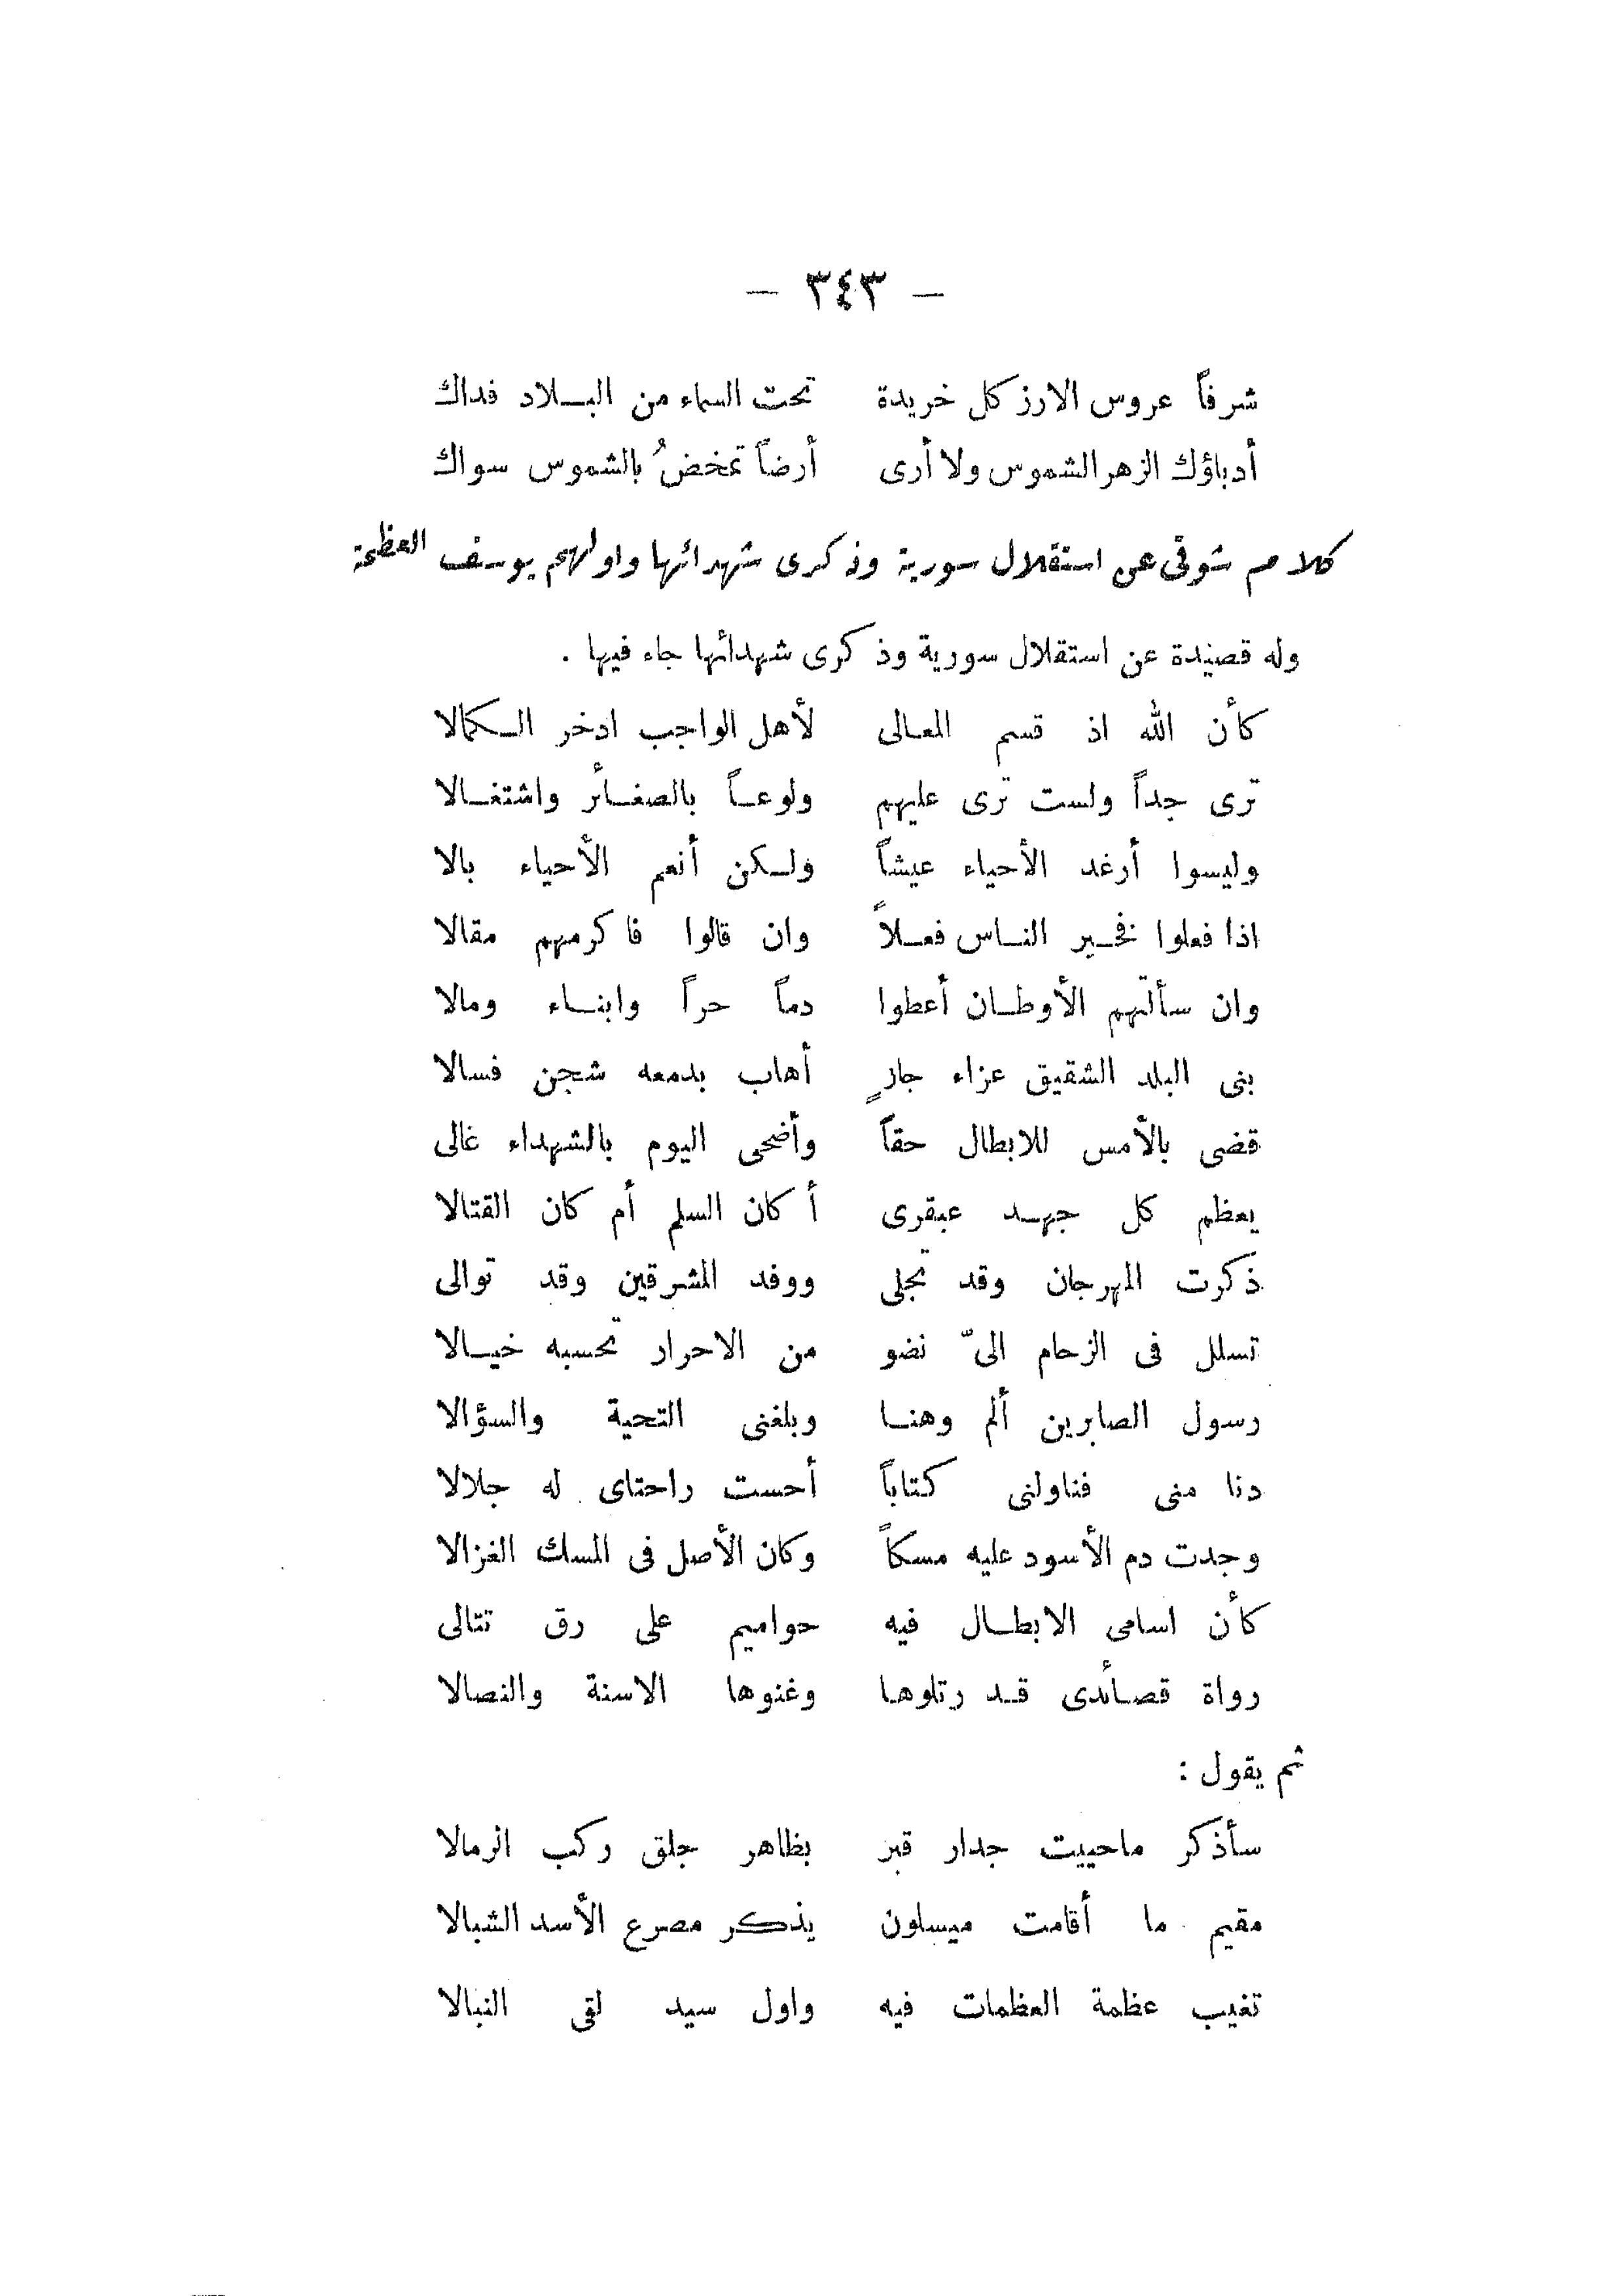 — ٣٤٣ —
شرفاً عروس الارز كل خريدة تحت السماء من البلاد فداك
أدباؤك الزهر الشموس ولا أرى أرضاً تمخضُ بالشموس سواك
كلام شوقى عن استقلال سورية وذكرى شهدائها واولهم يوسف العظمة
وله قصيدة عن استقلال سورية وذكرى شهدائها جاء فيها .
كأن الله اذ قسم المعالى لأهل الواجب ادخر الكمالا
ترى جداً ولست ترى عليهم ولوعاً بالصغائر واشتغالا
وليسوا أرغد الأحياء عيشاً ولكن أنعم الأحياء بالا
اذا فعلوا فخير الناس فعلاً وان قالوا فاكرمهم مقالا
وان سألتهم الأوطان أعطوا دماً حراً وابناء ومالا
بنى البلد الشقيق عزاء جارٍ أهاب بدمعه شجن فسالا
قضى بالأمس للابطال حقاً وأضحى اليوم بالشهداء غالى
يعظم كل جهد عبقرى أكان السلم أم كان القتالا
ذكرت المهرجان وقد تجلى ووفد المشرقين وقد توالى
تسلل فى الزحام الىّ نضو من الاحرار تحسبه خيالا
رسول الصابرين ألم وهنا وبلغنى التحية والسؤالا
دنا منى فناولنى كتاباً أحست راحتاى له جلالا
وجدت دم الأسود عليه مسكاً وكان الأصل فى المسك الغزالا
كأن اسامى الابطال فيه حواميم على رق تتالى
رواة قصائدى قد رتلوها وغنوها الاسنة والنصالا
ثم يقول :
سأذكر ماحييت جدار قبر بظاهر جلق ركب الرمالا
مقيم ما أقامت ميسلون يذكر مصرع الأسد الشبالا
تغيب عظمة العظمات فيه واول سيد لقى النبالا